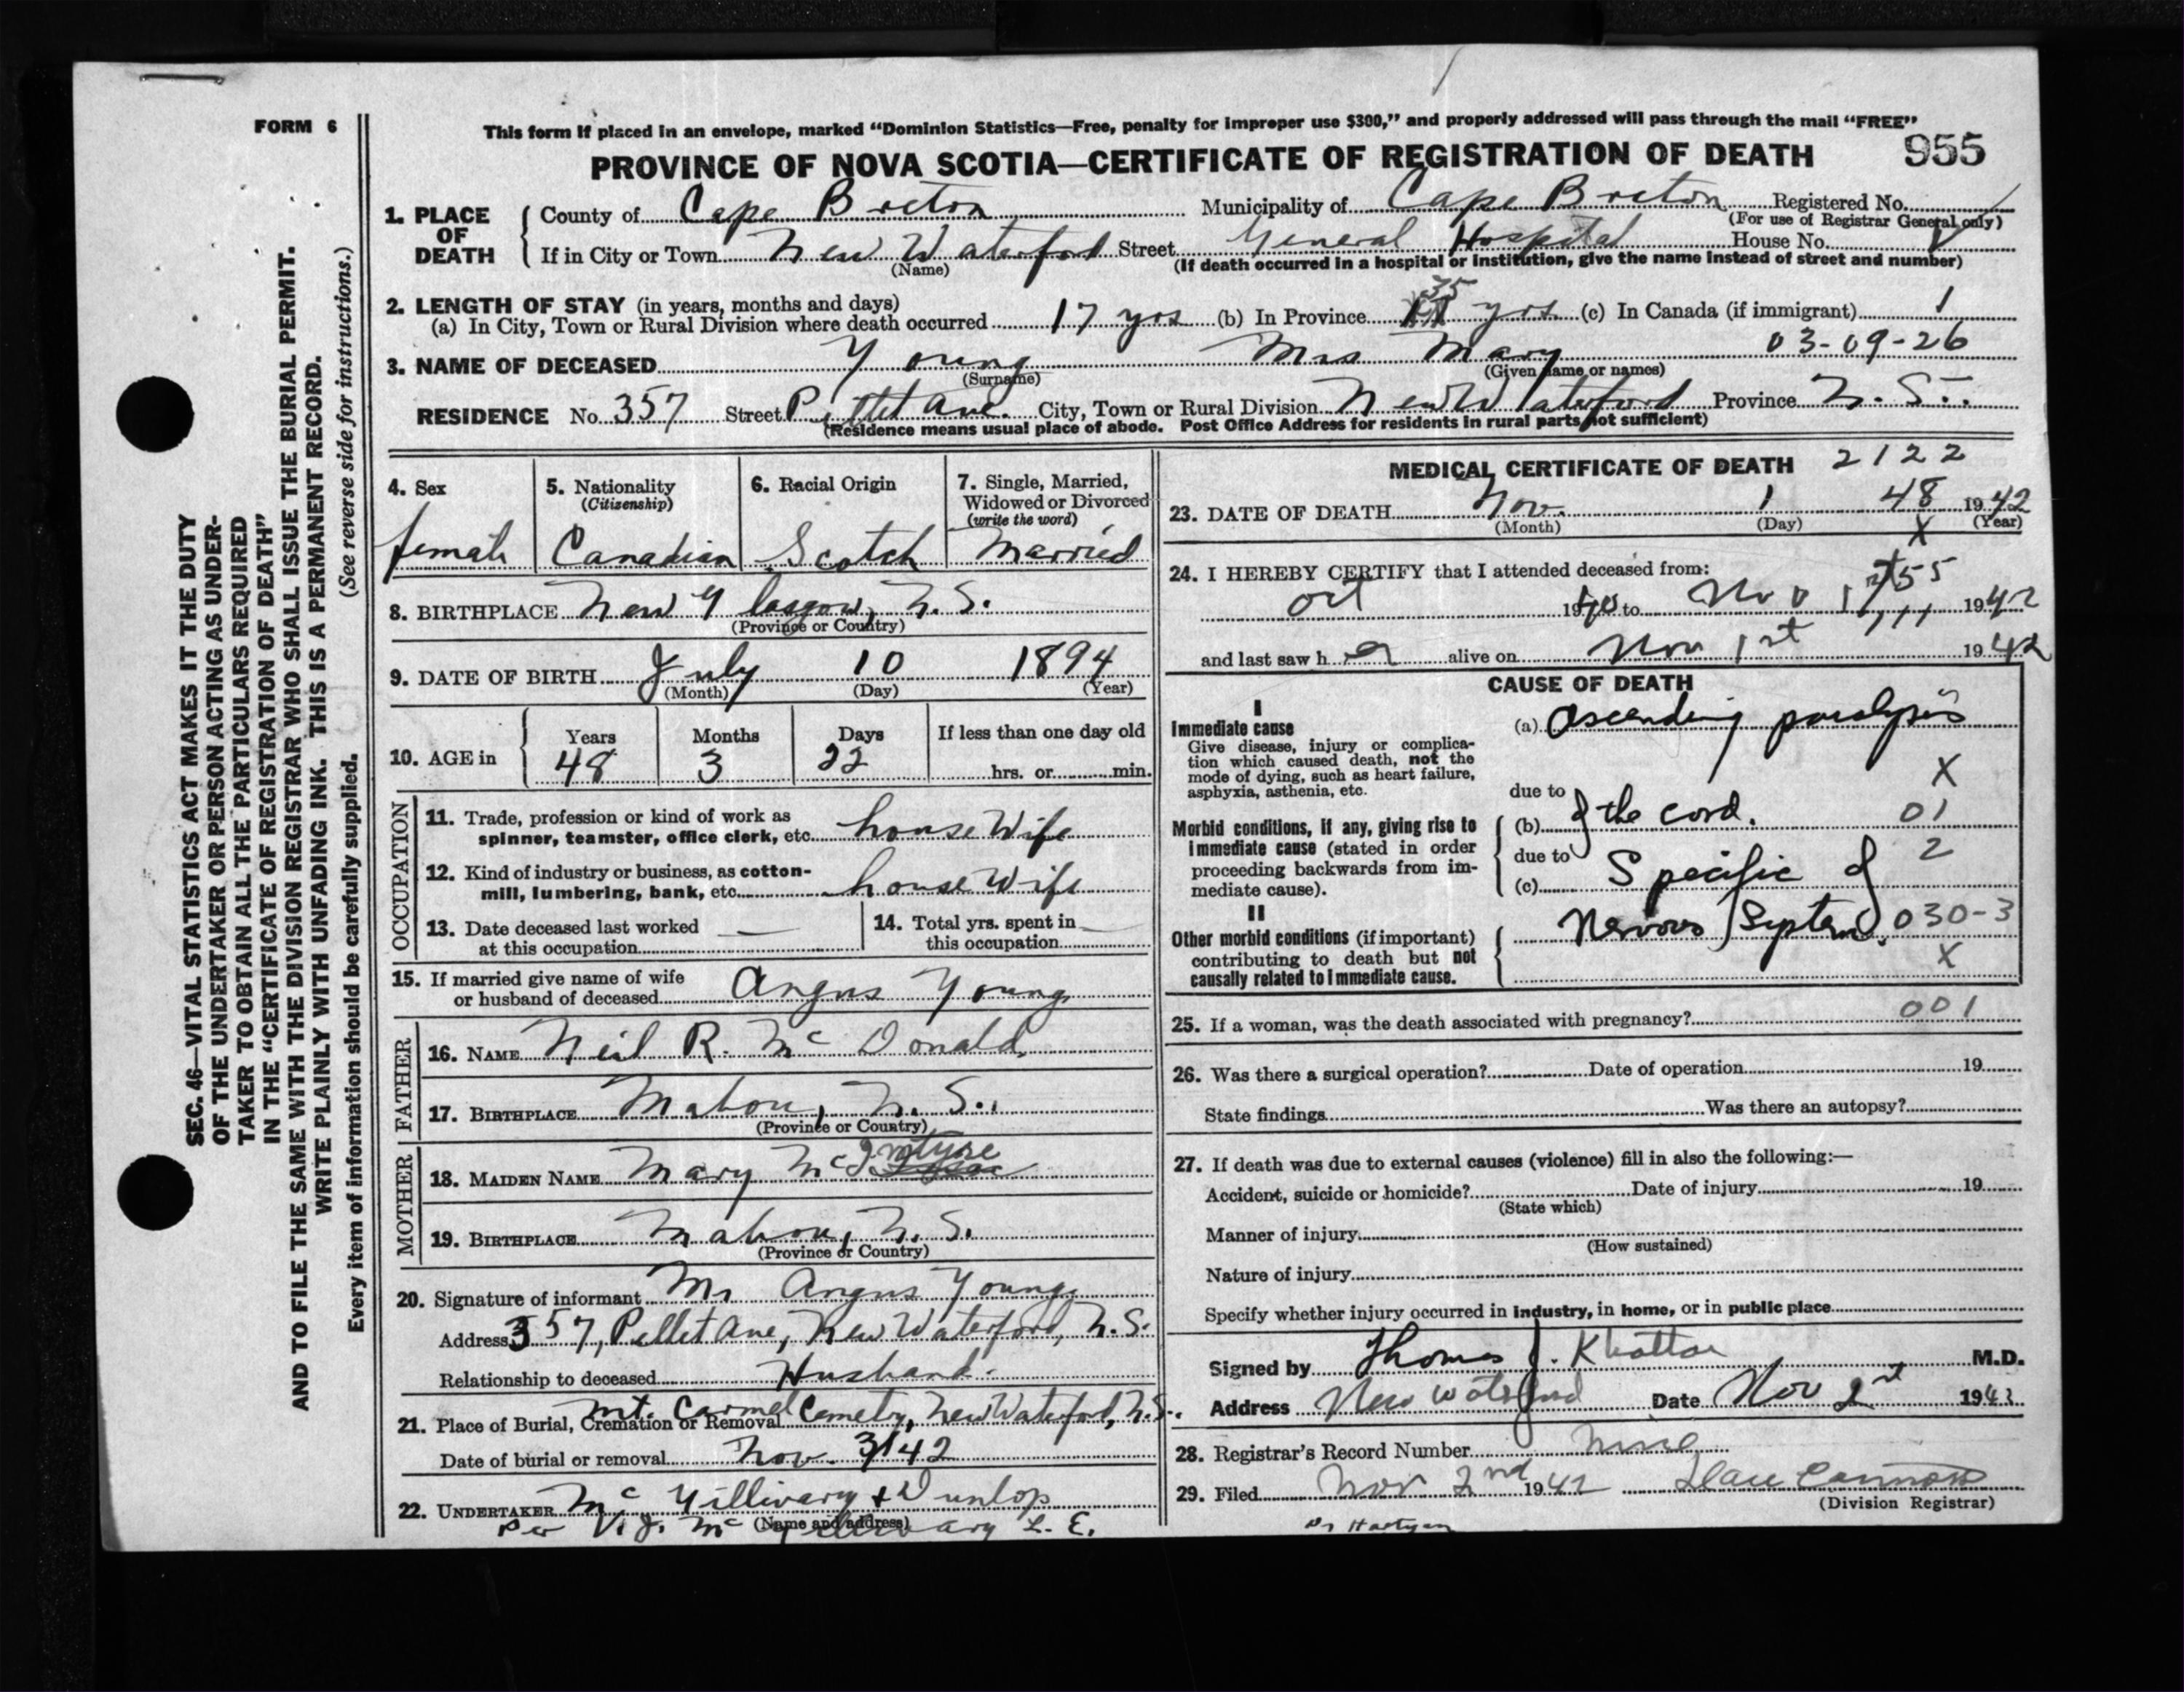 FORM 6
This form if placed in an envelope, marked “Dominion Statistics—Free, penalty for improper use $300,” and properly addressed will pass through the mail “FREE”
PROVINCE OF NOVA SCOTIA—CERTIFICATE OF REGISTRATION OF DEATH 955
1. PLACE OF DEATH
County of Cape Breton Municipality of Cape Breton Registered No.
(For use of Registrar General only)
If in City or Town New Waterford Street General Hospital House No.
(Name) (If death occurred in a hospital or institution, give the name instead of street and number)
2. LENGTH OF STAY (in years, months and days)
(a) In City, Town or Rural Division where death occurred 17 yrs (b) In Province 35 yrs. (c) In Canada (if immigrant) 1
3. NAME OF DECEASED Young Mrs Mary 03-09-26
(Surname) (Given name or names)
RESIDENCE No. 357 Street Pellet Ave. City, Town or Rural Division New Waterford Province N. S.
(Residence means usual place of abode. Post Office Address for residents in rural parts not sufficient)
SEC. 46—VITAL STATISTICS ACT MAKES IT THE DUTY
OF THE UNDERTAKER OR PERSON ACTING AS UNDER-
TAKER TO OBTAIN ALL THE PARTICULARS REQUIRED
IN THE “CERTIFICATE OF REGISTRATION OF DEATH”
AND TO FILE THE SAME WITH THE DIVISION REGISTRAR WHO SHALL ISSUE THE BURIAL PERMIT.
WRITE PLAINLY WITH UNFADING INK. THIS IS A PERMANENT RECORD.
Every item of information should be carefully supplied. (See reverse side for instructions.)
4. Sex
female
5. Nationality
(Citizenship)
Canadian
6. Racial Origin
Scotch
7. Single, Married,
Widowed or Divorced
(write the word)
Married
8. BIRTHPLACE New Glasgow, N. S.
(Province or Country)
9. DATE OF BIRTH July 10 1894
(Month) (Day) (Year)
10. AGE in
Years Months Days If less than one day old
48 3 22 hrs. or min.
OCCUPATION
11. Trade, profession or kind of work as
spinner, teamster, office clerk, etc. house Wife
12. Kind of industry or business, as cotton-
mill, lumbering, bank, etc. house Wife
13. Date deceased last worked
at this occupation —
14. Total yrs. spent in
this occupation —
15. If married give name of wife
or husband of deceased Angus Young
FATHER
16. NAME Neil R. Mc Donald
17. BIRTHPLACE Mabou, N. S.
(Province or Country)
MOTHER
18. MAIDEN NAME Mary McIntyre
19. BIRTHPLACE Mabou, N. S.
(Province or Country)
20. Signature of informant Mr Angus Young
Address 357, Pellet Ave, New Waterford, N. S.
Relationship to deceased Husband.
21. Place of Burial, Cremation or Removal Mt. Carmel Cemetry, New Waterford, N.S.
Date of burial or removal Nov. 3/42
22. UNDERTAKER Mc Gillivary + Dunlop
(Name and address)
per V. J. Mc Gillivary L. E.
MEDICAL CERTIFICATE OF DEATH 2122
23. DATE OF DEATH Nov. 1 48 1942
(Month) (Day) (Year)
X
24. I HEREBY CERTIFY that I attended deceased from:
Oct 1940 to Nov 1st 55 1942
and last saw her alive on Nov 1st 1942
CAUSE OF DEATH
I
Immediate cause
Give disease, injury or complica-
tion which caused death, not the
mode of dying, such as heart failure,
asphyxia, asthenia, etc.
(a) Ascending paralysis
X
due to
Morbid conditions, if any, giving rise to
immediate cause (stated in order
proceeding backwards from im-
mediate cause).
(b) of the cord. 01
due to 2
(c) Specific of
II
Other morbid conditions (if important)
contributing to death but not
causally related to immediate cause.
Nervous System. 030-3
X
25. If a woman, was the death associated with pregnancy? 001
26. Was there a surgical operation? Date of operation 19
State findings Was there an autopsy?
27. If death was due to external causes (violence) fill in also the following:—
Accident, suicide or homicide? Date of injury 19
(State which)
Manner of injury
(How sustained)
Nature of injury
Specify whether injury occurred in industry, in home, or in public place
Signed by Thomas J. Khattar M.D.
Address New Waterford Date Nov 2st 1942
28. Registrar's Record Number Nine
29. Filed Nov 2nd 1942
(Division Registrar)